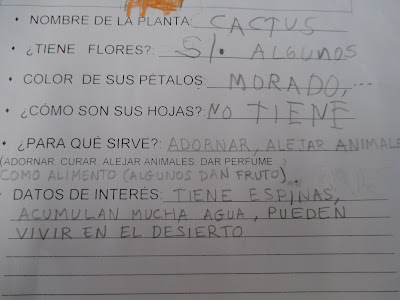 • NOMBRE DE LA PLANTA: CACTUS
• ¿TIENE FLORES?: SÍ. ALGUNOS
• COLOR DE SUS PÉTALOS: MORADO,...
• ¿CÓMO SON SUS HOJAS?: NO TIENE
• ¿PARA QUÉ SIRVE?: ADORNAR, ALEJAR ANIMALE
(ADORNAR, CURAR, ALEJAR ANIMALES, DAR PERFUME...)
COMO ALIMENTO (ALGUNOS DAN FRUTO)...
• DATOS DE INTERÉS: TIENE ESPINAS,
ACUMULAN MUCHA AGUA, PUEDEN
VIVIR EN EL DESIERTO